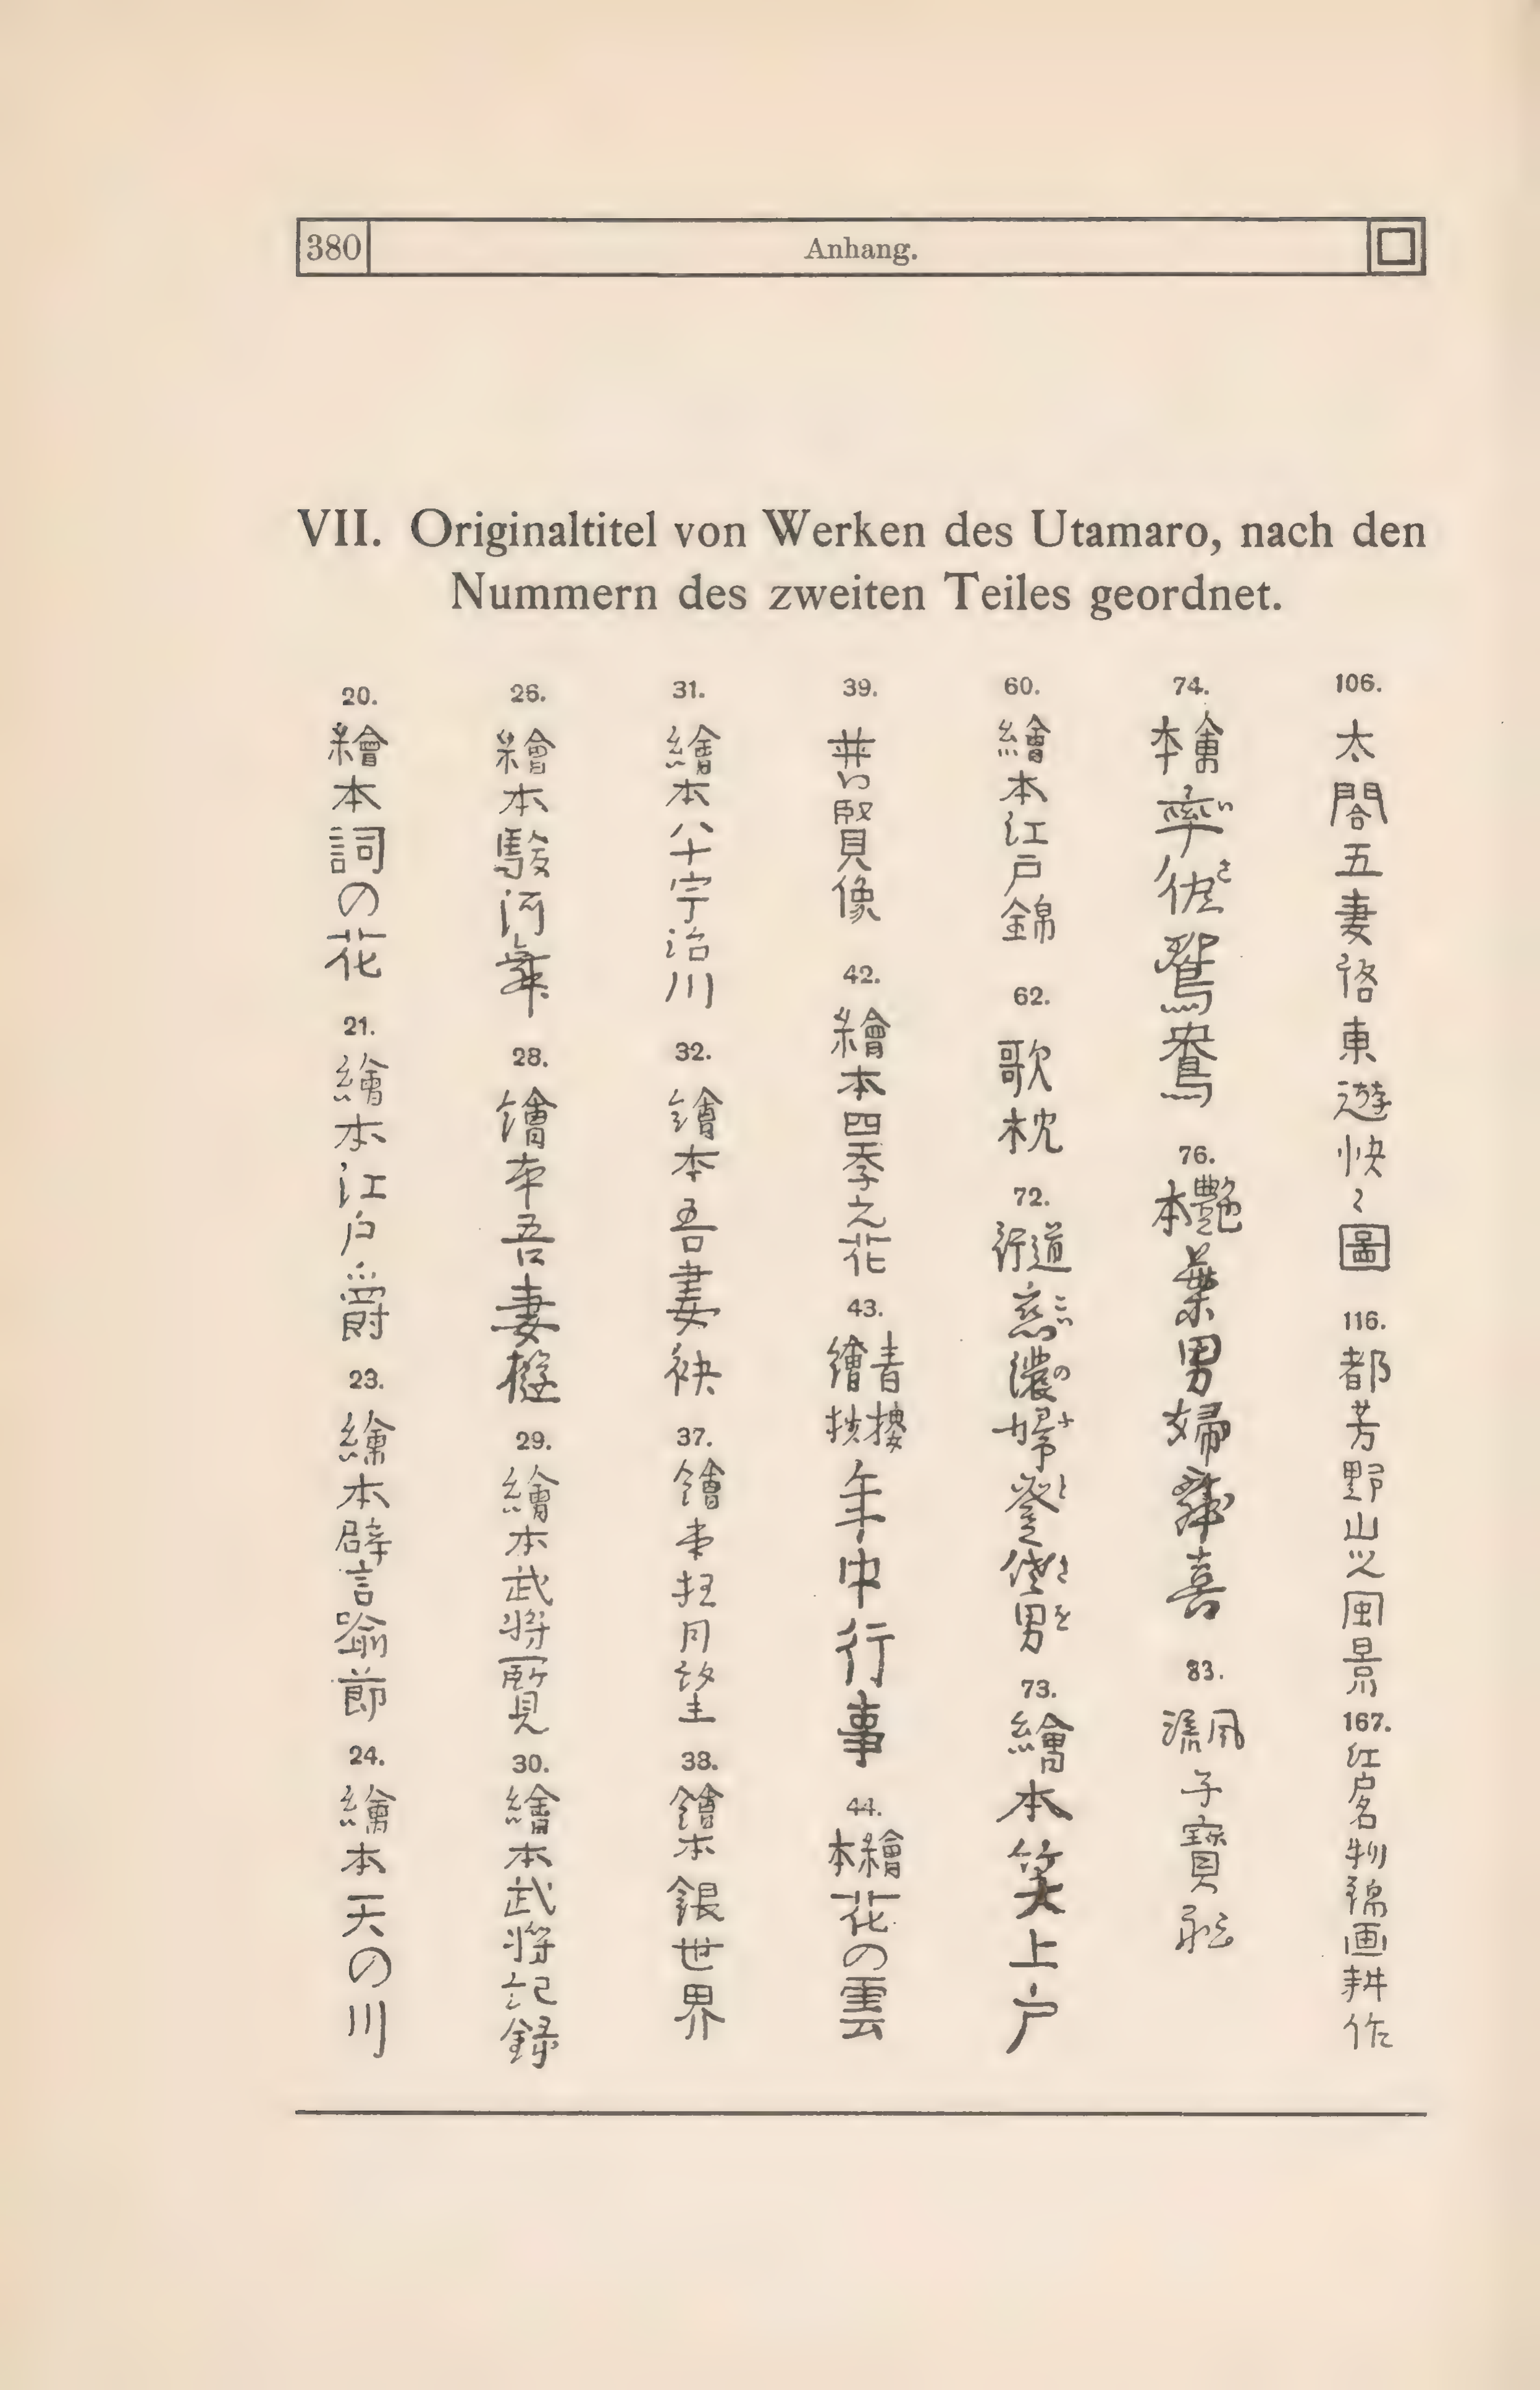 380
Anhang.
VII. Originaltitel von Werken des Utamaro, nach den
Nummern des zweiten Teiles geordnet.
20.
繪本詞の花
21.
繪本江戸爵
23.
繪本譬喩節
24.
繪本天の川
26.
繪本駿河舞
28.
繪本吾妻
29.
繪本武将一覧
30.
繪本武将記録
31.
繪本八十宇治川
32.
繪本吾妻袂
37.
繪本狂月望
38.
繪本銀世界
39.
普賢像
42.
繪本四季之花
43.
青樓
繪抄
年中行事
44.
繪本
花の雲
60.
繪本江戸錦
62.
歌枕
72.
道行
恋濃婦登佐男
こいのふとさを
73.
繪本笑上戸
74.
繪本
率佐鴛鴦
いさ
76.
艶本
葉男婦舞喜
83.
風流
子寶舩
106.
太閤五妻洛東遊快〻圖
116.
都芳野山之風景
167.
江戸名物錦画耕作